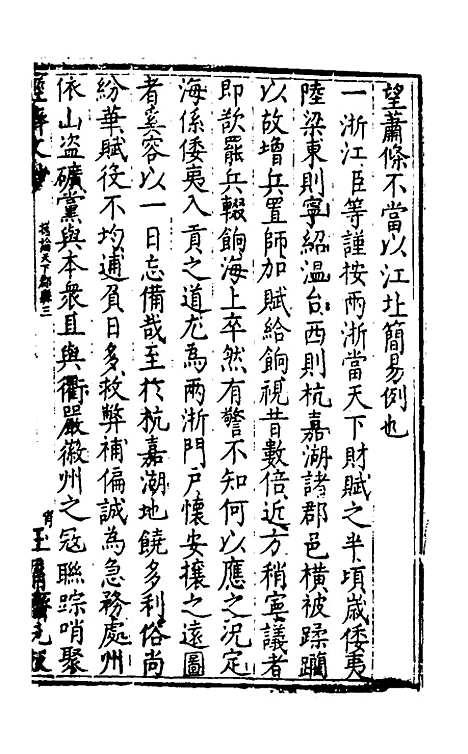 望蕭條不當以江北簡易例也
一浙江臣等謹按兩浙當天下財賦之半頃歲倭夷
陸梁東則寧紹温台西則杭嘉湖諸郡邑橫被蹂躪
以故增兵置師加賦給餉視昔數倍近方稍寧議者
即欲罷兵輟餉海上卒然有警不知何以應之況定
海係倭夷入貢之道尤為兩浙門戶懷安攘之遠圖
者奚容以一日忘備哉至於杭嘉湖地饒多利俗尚
紛華賦役不均逋負日多救弊補偏誠為急務處州
依山盜礦黨與本衆且與衢嚴徽州之寇聯踪哨聚
經濟文鈔 揔論天下郡縣三